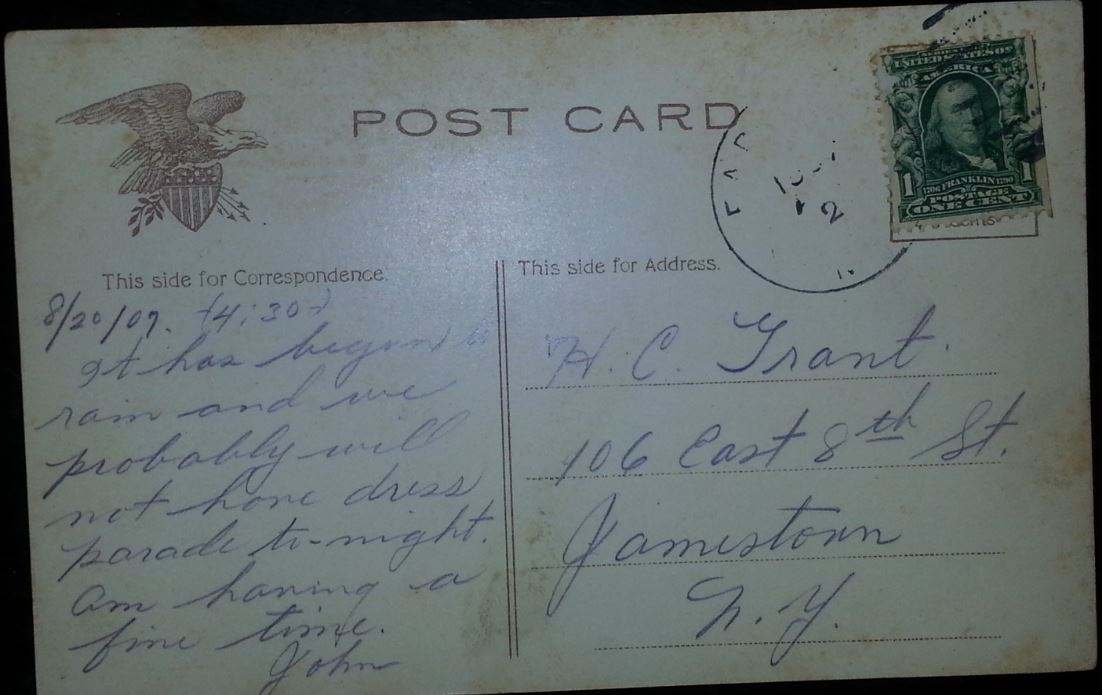 POST CARD
UNITED STATES OF
AMERICA
1 FRANKLIN 1
POSTAGE
ONE CENT
This side for Correspondence.
This side for Address.
8/20/07. (4:30)
It has begun to
rain and we
probably will
not have dress
parade to-night.
Am having a
fine time.
John
H. C. Grant.
106 East 8th St.
Jamestown
N. Y.